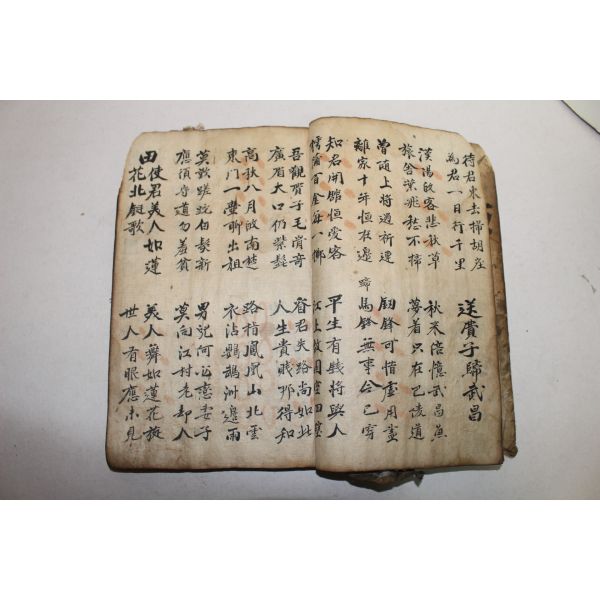 待君東去掃胡塵
為君一日行千里
送費子歸武昌
漢陽故客悲秋草
旅舍葉飛愁不掃
秋來倍憶武昌魚
夢着只在巴陵道
曽随上將過祈連
離家十年恒在邊
釰鋒可惜虛用盡
蹄
馬鋒無事今已穿
知君開舘恒愛客
樗蒲百金每一擲
平生有錢將與人
江上故園空四壁
吾觀費子毛骨奇
廣眉大口仍紫髭
看君失路尚如此
人生貴賤那得知
高秋八月故南楚
東門一壺聊出祖
路指鳳凰山北雲
衣沾鸚鵡洲邊雨
莫歎蹉跎白髮新
應須守道勿羞貧
男兒何必戀妻子
莫向江村老却人
田使君美人如蓮
花北鋋歌
美人舞如蓮花旋
世人有眼應未見